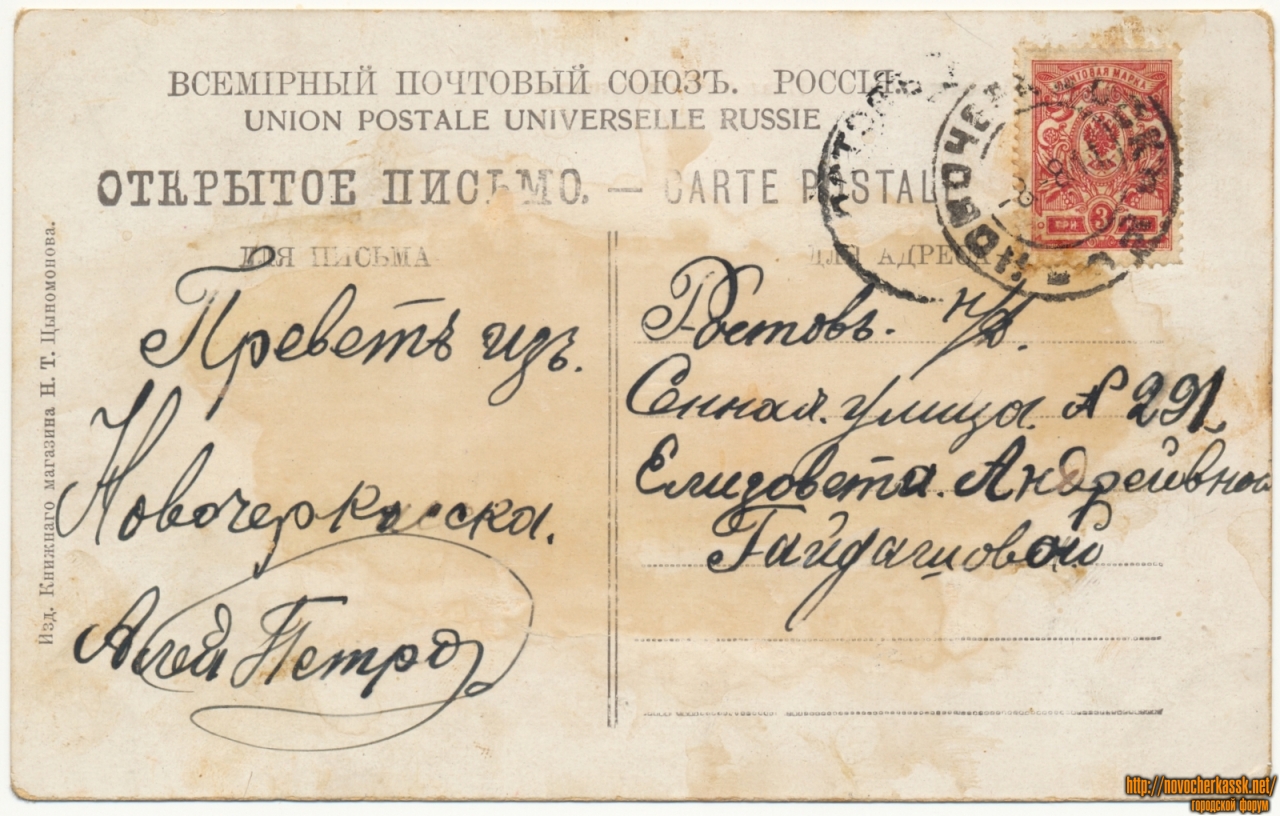 ВСЕМІРНЫЙ ПОЧТОВЫЙ СОЮЗЪ. РОССІЯ.
UNION POSTALE UNIVERSELLE RUSSIE
ОТКРЫТОЕ ПИСЬМО. — CARTE POSTALE
ПОЧТОВАЯ МАРКА
3
НОВОЧЕРКАССКЪ
ДЛЯ ПИСЬМА
ДЛЯ АДРЕСА
Преветъ изъ.
Новочеркасска.
Ростовъ. н/Д.
Сенная. улица. № 291
Елизовета. Андрейвна
Гайдашовой
Изд. Книжнаго магазина Н. Т. Цыномонова.
http://novocherkassk.net/
городской форум